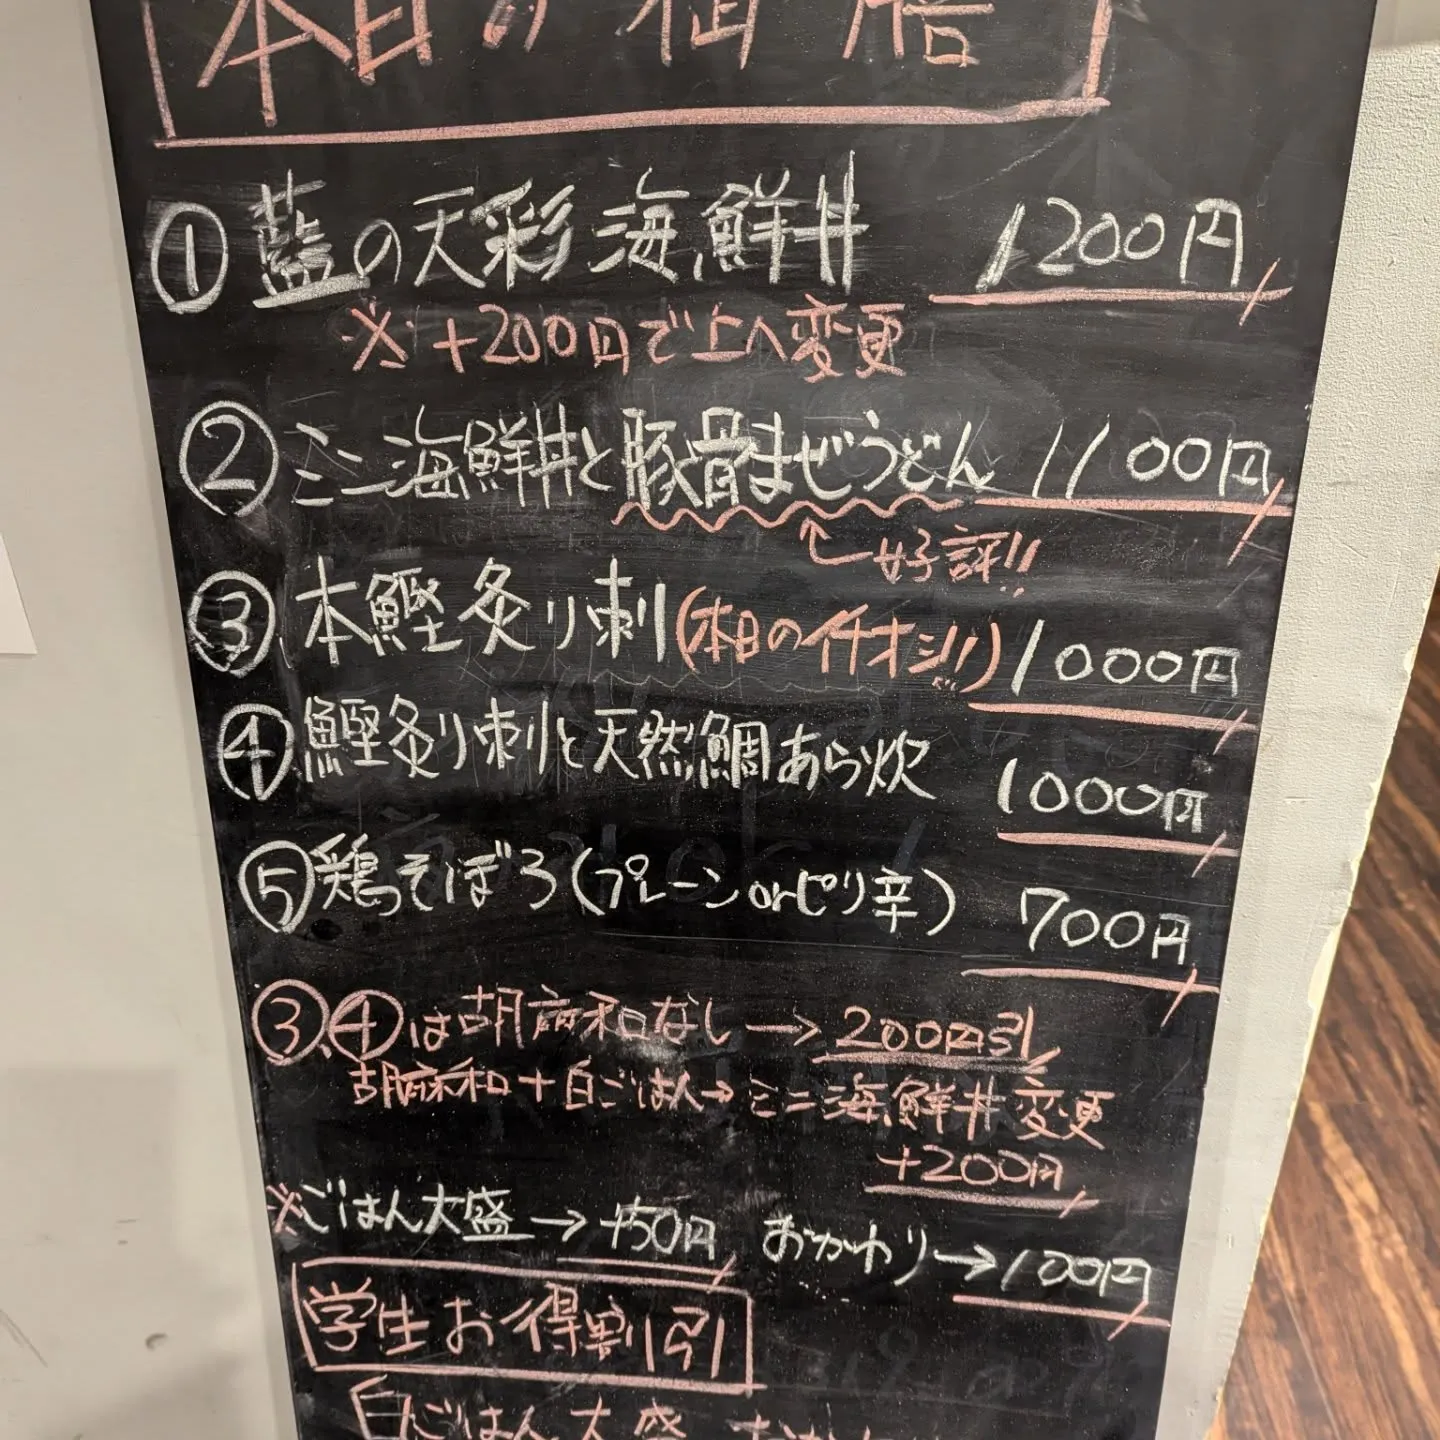 本日の御膳
① 藍の天彩海鮮丼 1200円
※+200円で上へ変更
② ミニ海鮮丼と豚骨まぜうどん 1100円
↑好評!!
③ 本鰹炙り刺(本日のイチオシ!!) 1000円
④ 鰹炙り刺と天然鯛あら炊 1000円
⑤ 鶏っそぼろ(プレーンorピリ辛) 700円
③、④は胡麻和なし→200円引
胡麻和+白ごはん→ミニ海鮮丼変更
+200円
※ごはん大盛→+50円 おかわり→100円
学生お得割引
白ごはん大盛